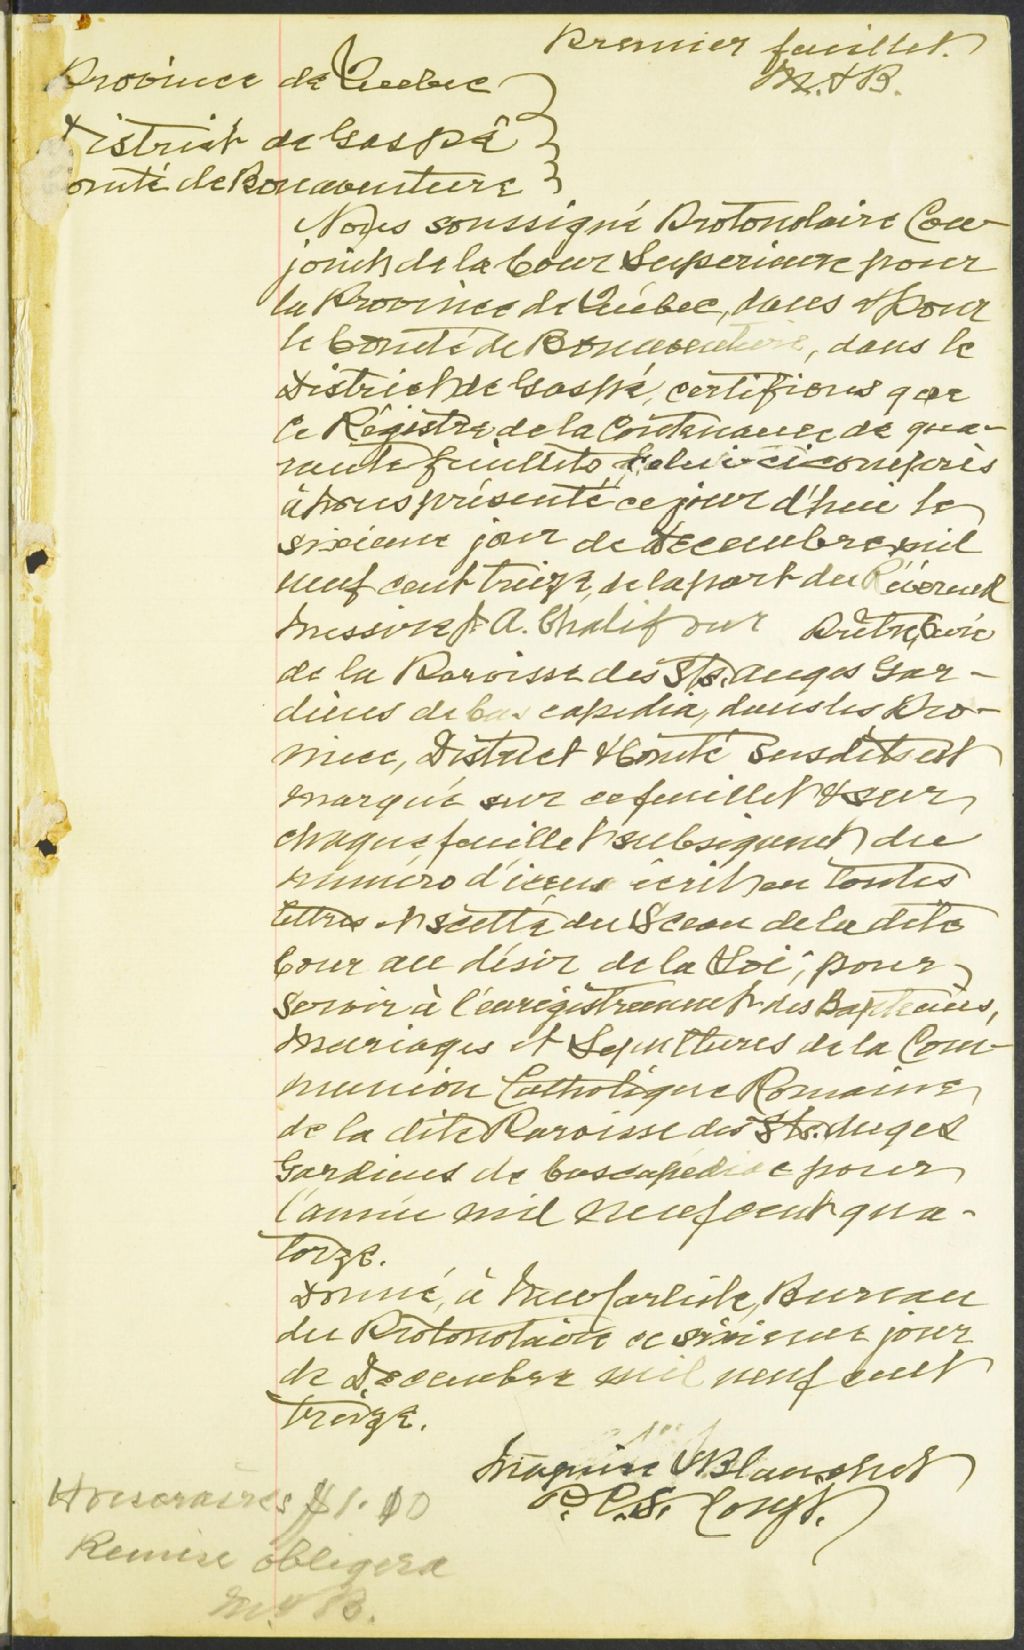 Premier feuillet.
M. & B.
Province de Quebec
District de Gaspé
Comté de Bonaventure
Nous soussigné Protonotaire Con-
joint de la Cour Superieure pour
la Province de Québec, dans & pour
le Comté de Bonaventure, dans le
District de Gaspé, certifions que
ce Régistre de la Contenance de qua-
rante feuillets celui-ci compris
à nous présenté ce jour d'hui le
sixieme jour de Decembre mil
neuf cent treize, de la part du Révérend
Messire J. A. Chalifour Prêtre, Curé
de la Paroisse des Sts. Anges Gar-
diens de Cascapedia, dans les Pro-
vince, District & Comté susdits est
marqué sur ce feuillet & sur
chaque feuillet subsequent du
numéro d'iceux écrit en toutes
lettres et scellé du Sceau de la dite
Cour au désir de la Loi, pour
servir à l'enrégistrement des Baptemes,
Mariages et Sepultures de la Com-
munion Catholique Romaine
de la dite Paroisse des Sts. Anges
Gardiens de Cascapédiac pour
l'année mil neuf cent qua-
torze.
Donné, à New Carlisle, Bureau
du Protonotaire ce sixieme jour
de Decembre mil neuf cent
treize.
Maguire & Blanchet
P. C. S. Conjt.
Honoraires $1.10
Remise obligera
M. & B.